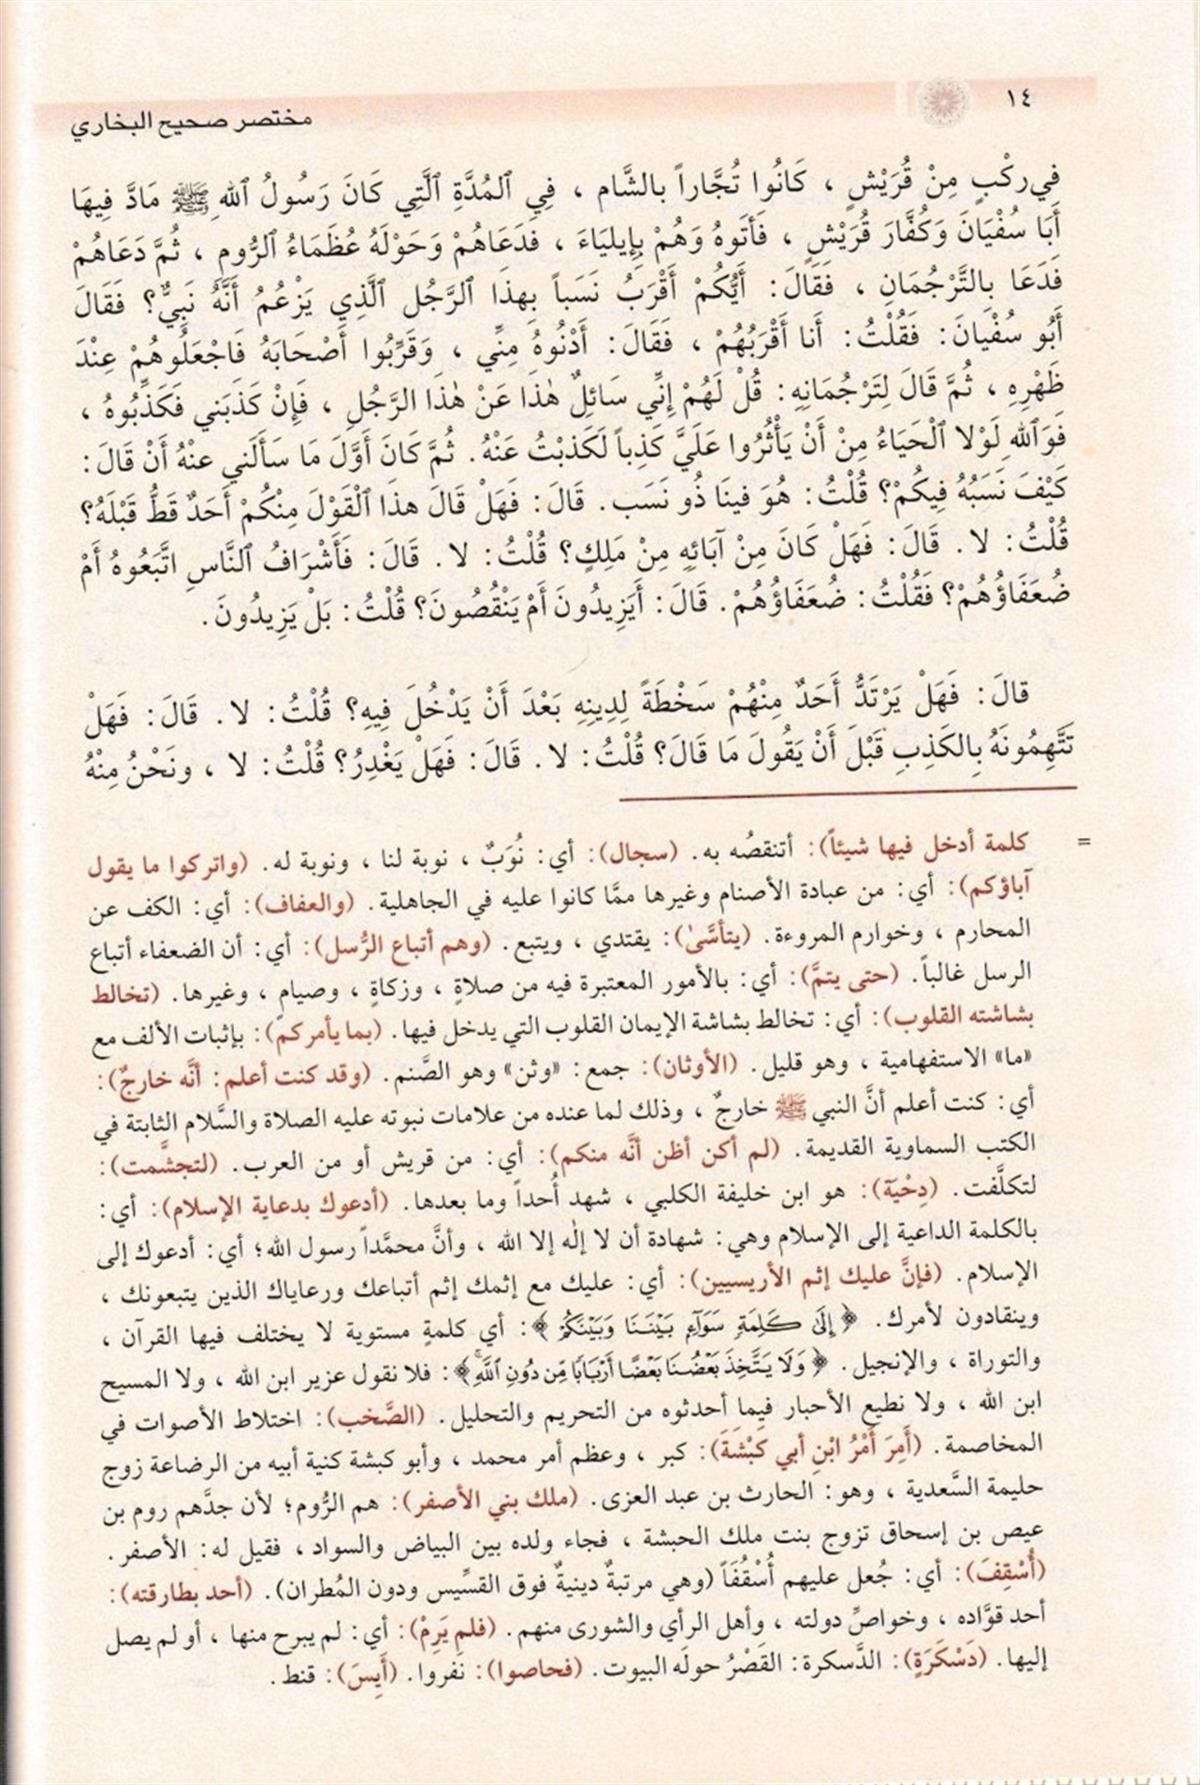 ١٤
مختصر صحيح البخاري
في ركْبٍ مِنْ قُرَيْشٍ ، كَانُوا تُجَّاراً بالشَّام ، فِي ٱلمُدَّةِ ٱلَّتِي كَانَ رَسُولُ ٱللهِ ﷺ مَادَّ فِيهَا
أَبَا سُفْيَانَ وَكُفَّارَ قُرَيْشٍ ، فَأَتَوهُ وَهُمْ بِإِيلِيَاءَ ، فدَعَاهُمْ وَحَوْلَهُ عُظَمَاءُ ٱلرُّومِ ، ثُمَّ دَعَاهُمْ
فَدَعَا بِالتَّرْجُمَانِ ، فَقَالَ: أَيُّكُمْ أَقْرَبُ نَسَباً بِهذَا ٱلرَّجُلِ ٱلَّذِي يَزْعُمُ أَنَّهُ نَبِيٌّ؟ فَقَالَ
أَبُو سُفْيَانَ: فَقُلْتُ: أَنا أَقْرَبُهُمْ ، فَقَالَ: أَدْنُوهُ مِنِّي ، وَقَرِّبُوا أَصْحَابَهُ فَاجْعَلُوهُمْ عِنْدَ
ظَهْرِهِ ، ثُمَّ قَالَ لِتَرْجُمَانِهِ: قُلْ لَهُمْ إِنِّي سَائِلٌ هٰذا عَنْ هٰذَا الرَّجُلِ ، فَإِنْ كَذَبَني فَكَذِّبُوهُ ،
فَوَٱللهِ لَوْلا ٱلْحَيَاءُ مِنْ أَنْ يَأْثُرُوا عَلَيَّ كَذِباً لَكَذبْتُ عَنْهُ. ثُمَّ كَانَ أَوَّلَ مَا سَأَلَني عنْهُ أَنْ قَالَ:
كَيْفَ نَسَبُهُ فِيكُمْ؟ قُلْتُ: هُوَ فينَا ذُو نَسَب. قَالَ: فَهَلْ قَالَ هذَا ٱلْقَوْلَ مِنْكُمْ أَحَدٌ قَطُّ قَبْلَهُ؟
قُلْتُ: لا. قَالَ: فَهَلْ كَانَ مِنْ آبَائِهِ مِنْ مَلِكٍ؟ قُلْتُ: لا. قَالَ: فَأَشْرَافُ ٱلنَّاسِ اتَّبَعُوهُ أَمْ
ضُعَفَاؤُهُمْ؟ فَقُلْتُ: ضُعَفَاؤُهُمْ. قَالَ: أَيَزِيدُونَ أَمْ يَنْقُصُونَ؟ قُلْتُ: بَلْ يَزِيدُونَ.
قالَ: فَهَلْ يَرْتَدُّ أَحَدٌ مِنْهُمْ سَخْطَةً لِدِينِهِ بَعْدَ أَنْ يَدْخُلَ فِيهِ؟ قُلْتُ: لا. قَالَ: فَهَلْ
تَتَّهِمُونَهُ بِالكَذِبِ قَبْلَ أَنْ يَقُولَ مَا قَالَ؟ قُلْتُ: لا. قَالَ: فَهَلْ يَغْدِرُ؟ قُلْتُ: لا ، ونَحْنُ مِنْهُ
= كلمة أدخل فيها شيئاً): أتنقصُه به. (سجال): أي: نُوَبٌ ، نوبة لنا ، ونوبة له. (واتركوا ما يقول
آباؤكم): أي: من عبادة الأصنام وغيرها ممَّا كانوا عليه في الجاهلية. (والعفاف): أي: الكف عن
المحارم ، وخوارم المروءة. (يتأسَّىٰ): يقتدي ، ويتبع. (وهم أتباع الرُّسل): أي: أن الضعفاء أتباع
الرسل غالباً. (حتى يتمَّ): أي: بالأمور المعتبرة فيه من صلاةٍ ، وزكاةٍ ، وصيامٍ ، وغيرها. (تخالط
بشاشته القلوب): أي: تخالط بشاشة الإيمان القلوب التي يدخل فيها. (بما يأمركم): بإثبات الألف مع
«ما» الاستفهامية ، وهو قليل. (الأوثان): جمع: «وثن» وهو الصَّنم. (وقد كنت أعلم: أنَّه خارجٌ):
أي: كنت أعلم أنَّ النبي ﷺ خارجٌ ، وذلك لما عنده من علامات نبوته عليه الصلاة والسَّلام الثابتة في
الكتب السماوية القديمة. (لم أكن أظن أنَّه منكم): أي: من قريش أو من العرب. (لتجشَّمت):
لتكلَّفت. (دِحْيَة): هو ابن خليفة الكلبي ، شهد أُحداً وما بعدها. (أدعوك بدعاية الإسلام): أي:
بالكلمة الداعية إلى الإسلام وهي: شهادة أن لا إلٰه إلا الله ، وأنَّ محمَّداً رسول الله؛ أي: أدعوك إلى
الإسلام. (فإنَّ عليك إثم الأريسيين): أي: عليك مع إثمك إثم أتباعك ورعاياك الذين يتبعونك ،
وينقادون لأمرك. ﴿ إِلَىٰ كَلِمَةٍ سَوَآءٍ بَيْنَنَا وَبَيْنَكُمْ ﴾: أي كلمةٍ مستوية لا يختلف فيها القرآن ،
والتوراة ، والإنجيل. ﴿ وَلَا يَتَّخِذَ بَعْضُنَا بَعْضًا أَرْبَابًا مِّن دُونِ ٱللَّهِ ﴾: فلا نقول عزير ابن الله ، ولا المسيح
ابن الله ، ولا نطيع الأحبار فيما أحدثوه من التحريم والتحليل. (الصَّخب): اختلاط الأصوات في
المخاصمة. (أَمِرَ أَمْرُ ابْنِ أبي كَبْشَةَ): كبر ، وعظم أمر محمد ، وأبو كبشة كنية أبيه من الرضاعة زوج
حليمة السَّعدية ، وهو: الحارث بن عبد العزى. (ملك بني الأصفر): هم الرُّوم؛ لأن جدَّهم روم بن
عيص بن إسحاق تزوج بنت ملك الحبشة ، فجاء ولده بين البياض والسواد ، فقيل له: الأصفر.
(أُسْقِفَ): أي: جُعل عليهم أُسْقُفَاً (وهي مرتبةٌ دينيةٌ فوق القسِّيس ودون المُطران). (أحد بطارقته):
أحد قوَّاده ، وخواصِّ دولته ، وأهل الرأي والشورى منهم. (فلم يَرِمْ): أي: لم يبرح منها ، أو لم يصل
إليها. (دَسْكَرَةٍ): الدَّسكرة: القَصْرُ حولَه البيوت. (فحاصوا): نَفروا. (أَيِسَ): قنط.